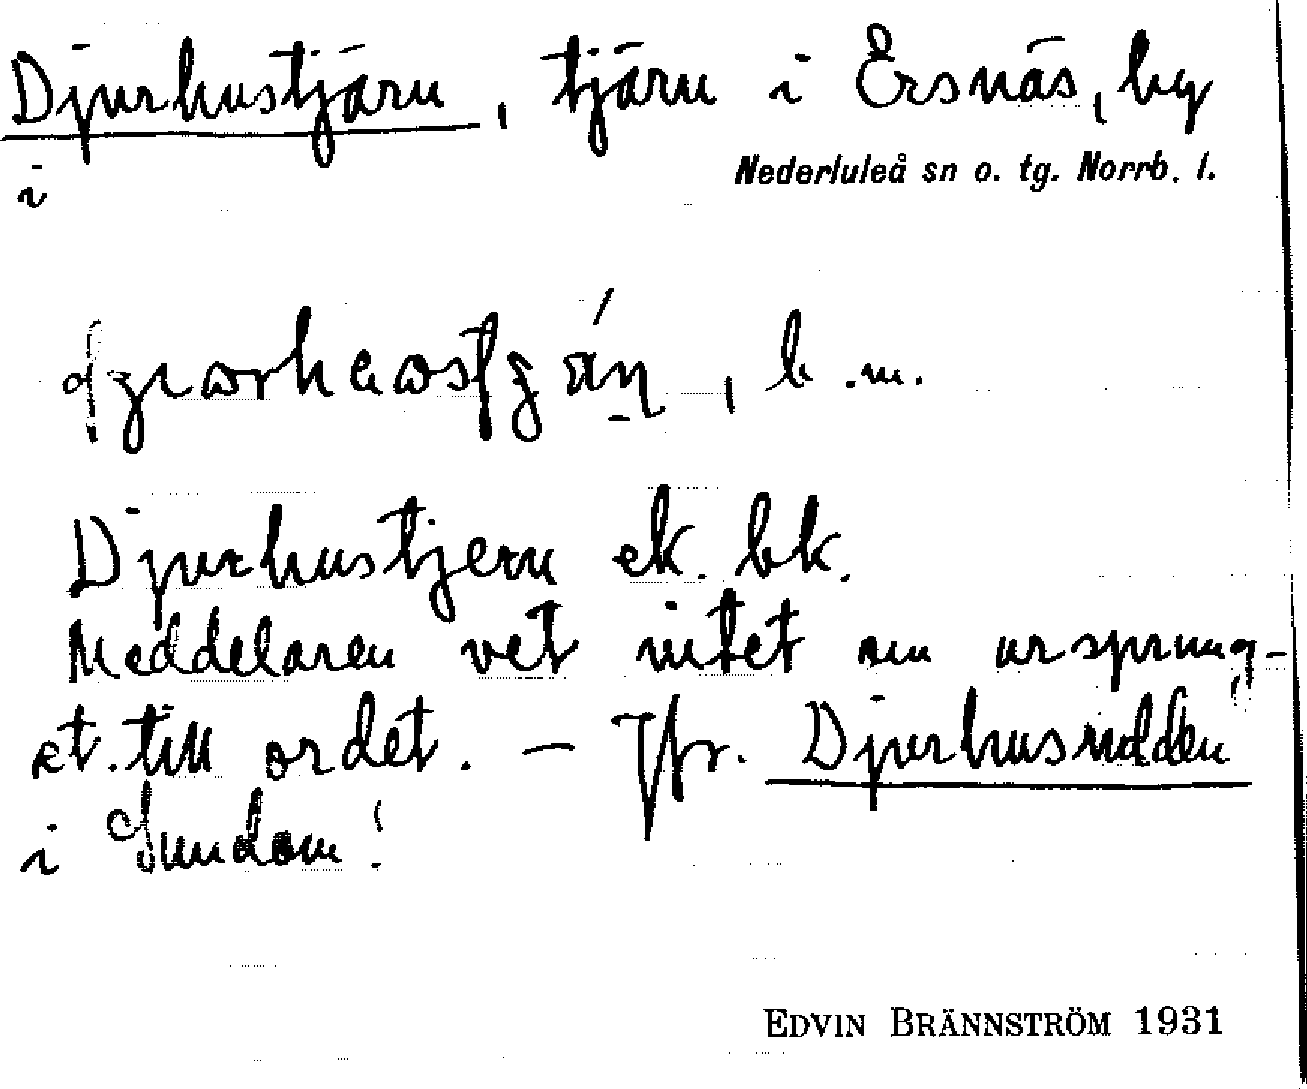 Djurhustjärn, tjärn i Ersnäs, by
i Nederluleå sn o. tg. Norrb. l.
b.m.
Djurhustjern ek. bk.
Meddelaren vet intet om ursprung-
et till ordet. — Jfr. Djurhusudden
i Sundom!
EDVIN BRÄNNSTRÖM 1931